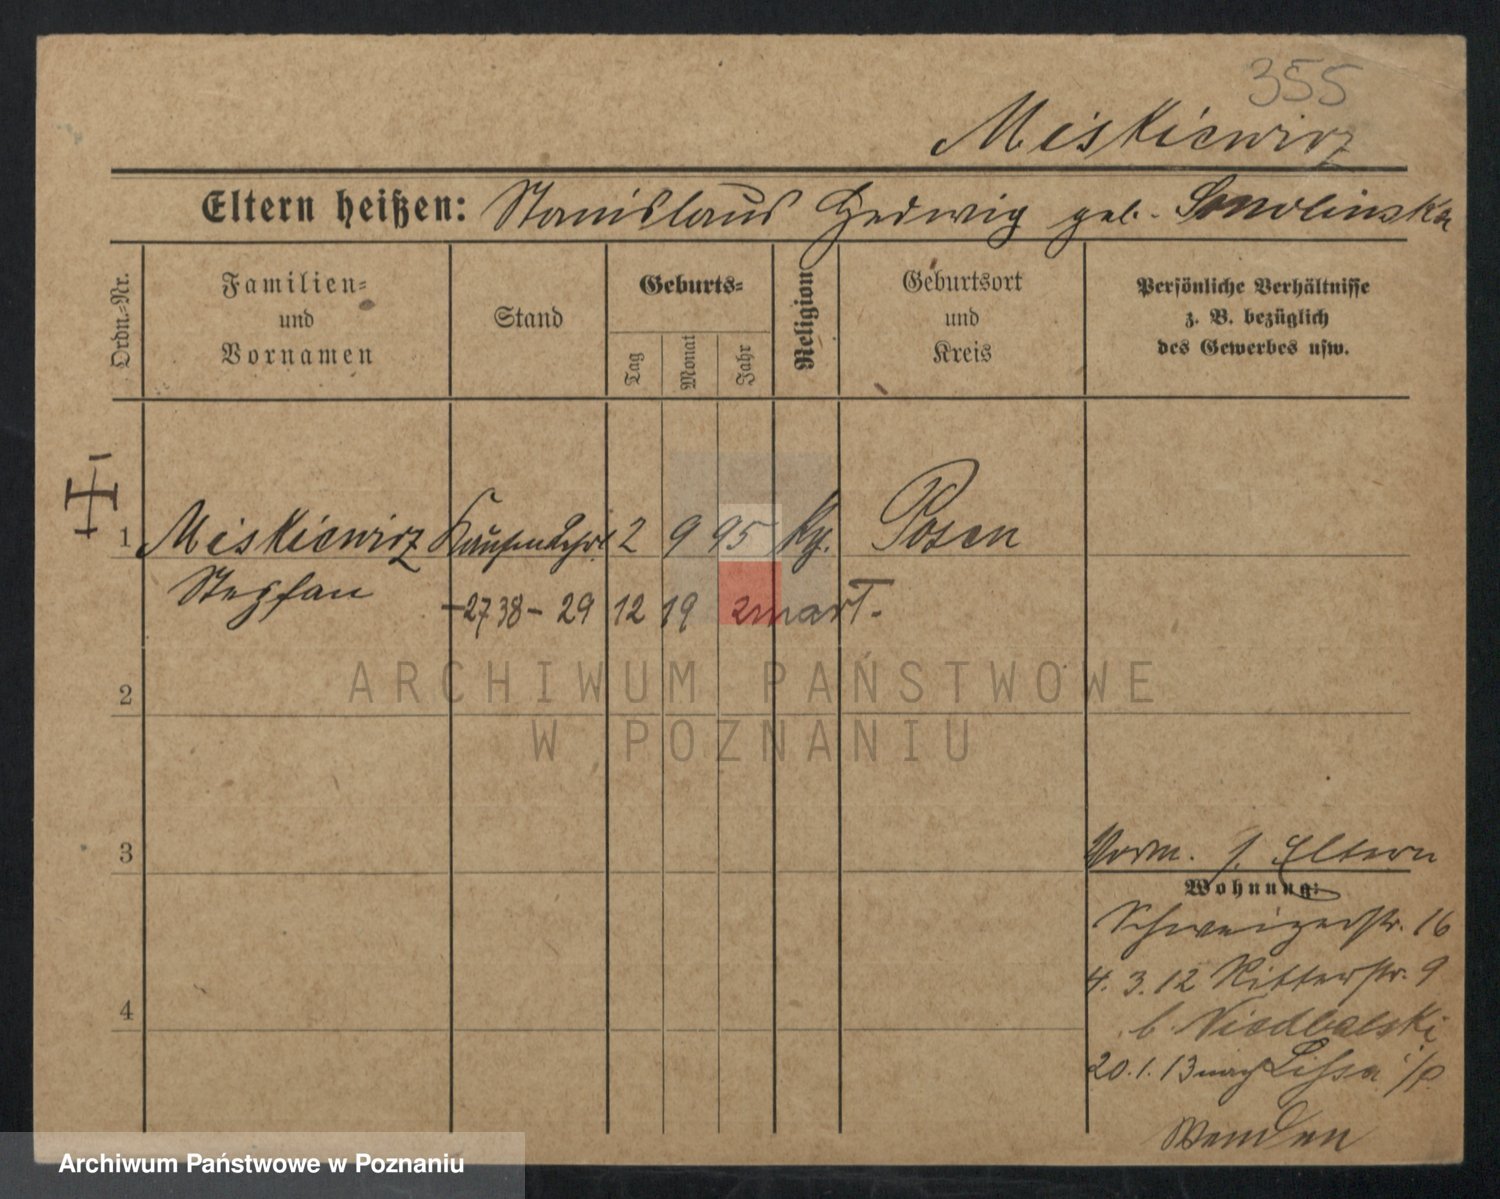 355
Miskiewicz
Eltern heißen: Stanislaus Hedwig geb. Smolinska
Ordn.-Nr.
Familien-
und
Vornamen
Stand
Geburts-
Tag
Monat
Jahr
Religion
Geburtsort
und
Kreis
Persönliche Verhältnisse
z. B. bezüglich
des Gewerbes usw.
1 Miskiewicz 2 9 95 Posen
Stephan
-2738- 29 12 19
ARCHIWUM PAŃSTWOWE
W POZNANIU
2
3
Vorm. s. Eltern
Wohnung:
Schweizerstr. 16
4. 3. 12 Ritterstr. 9
b.
4
20. 1. 13 nach Lissa i/P.
Archiwum Państwowe w Poznaniu